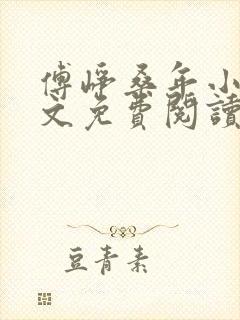 傅崢桑年小
文免費閱讀
豆青素